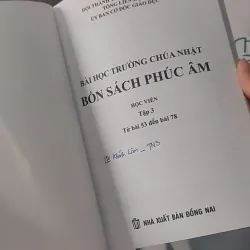 HỘI THÁNH
TỔNG LIÊN
ỦY BAN CƠ ĐỐC GIÁO DỤC
BÀI HỌC TRƯỜNG CHÚA NHẬT
BỐN SÁCH PHÚC ÂM
HỌC VIÊN
Tập 3
Từ bài 53 đến bài 78
Lâm
NHÀ XUẤT BẢN ĐỒNG NAI